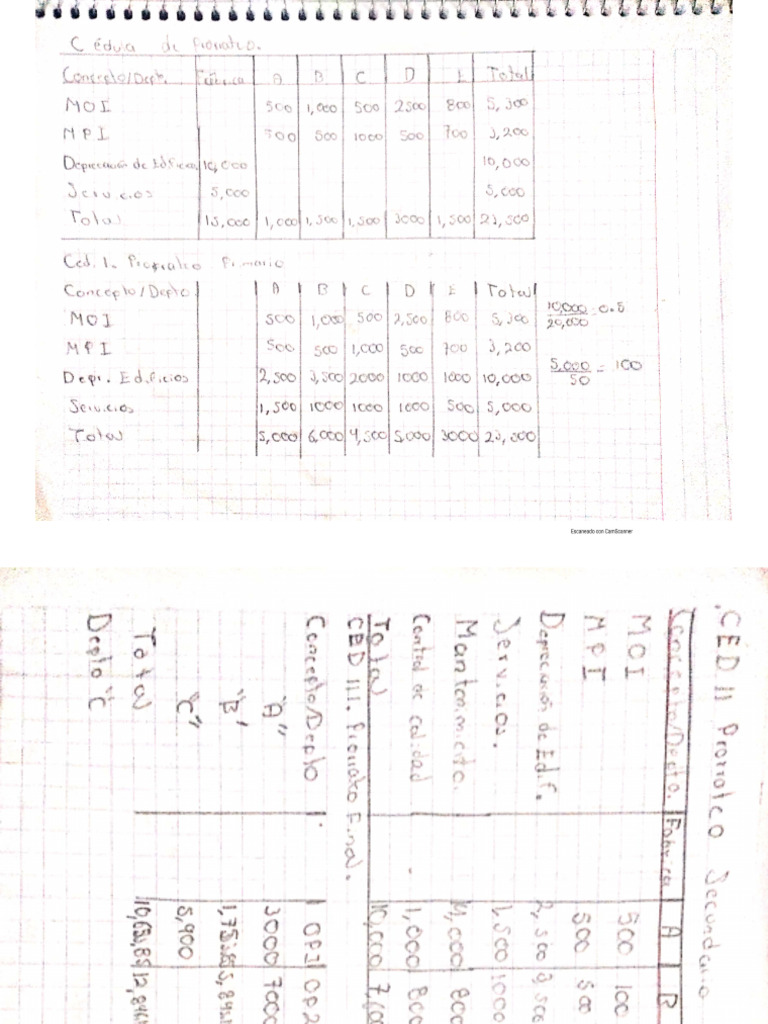 Cédula de Prorrateo.
Concepto/Depto. Fábrica A B C D E Total
MOI 500 1,000 500 2500 800 5,300
MPI 700 500 1000 500 700 3,200
Depreciación de Edificios 10,000 10,000
Servicios 5,000 5,000
Total 15,000 1,000 1,500 1,500 3000 1,500 23,500
Ced. 1. Prorrateo Primario
Concepto/Depto. A B C D E Total
MOI 500 1,000 500 2,500 800 5,300
10,000 = 0.5
20,000
MPI 500 500 1,000 500 700 3,200
Depr. Edificios 2,500 3,500 2000 1000 1000 10,000
5,000 = 100
50
Servicios 1,500 1000 1000 1000 500 5,000
Total 5,000 6,000 4,500 5,000 3000 23,500
Escaneado con CamScanner
CED II Prorrateo Secundario
Concepto/Depto. Fabrica A B
MOI 500 100
MPI 500 500
Depreciación de Edif. 2,500 3,500
Servicios. 1,500 1000
Mantenimiento. 4,000 800
Control de calidad 1,000 800
Total 10,000
CED III. Prorrateo Final.
Concepto/Depto OP1 OP2
"A" 3000 7000
"B"
"C" 5,900
Total
Depto "C